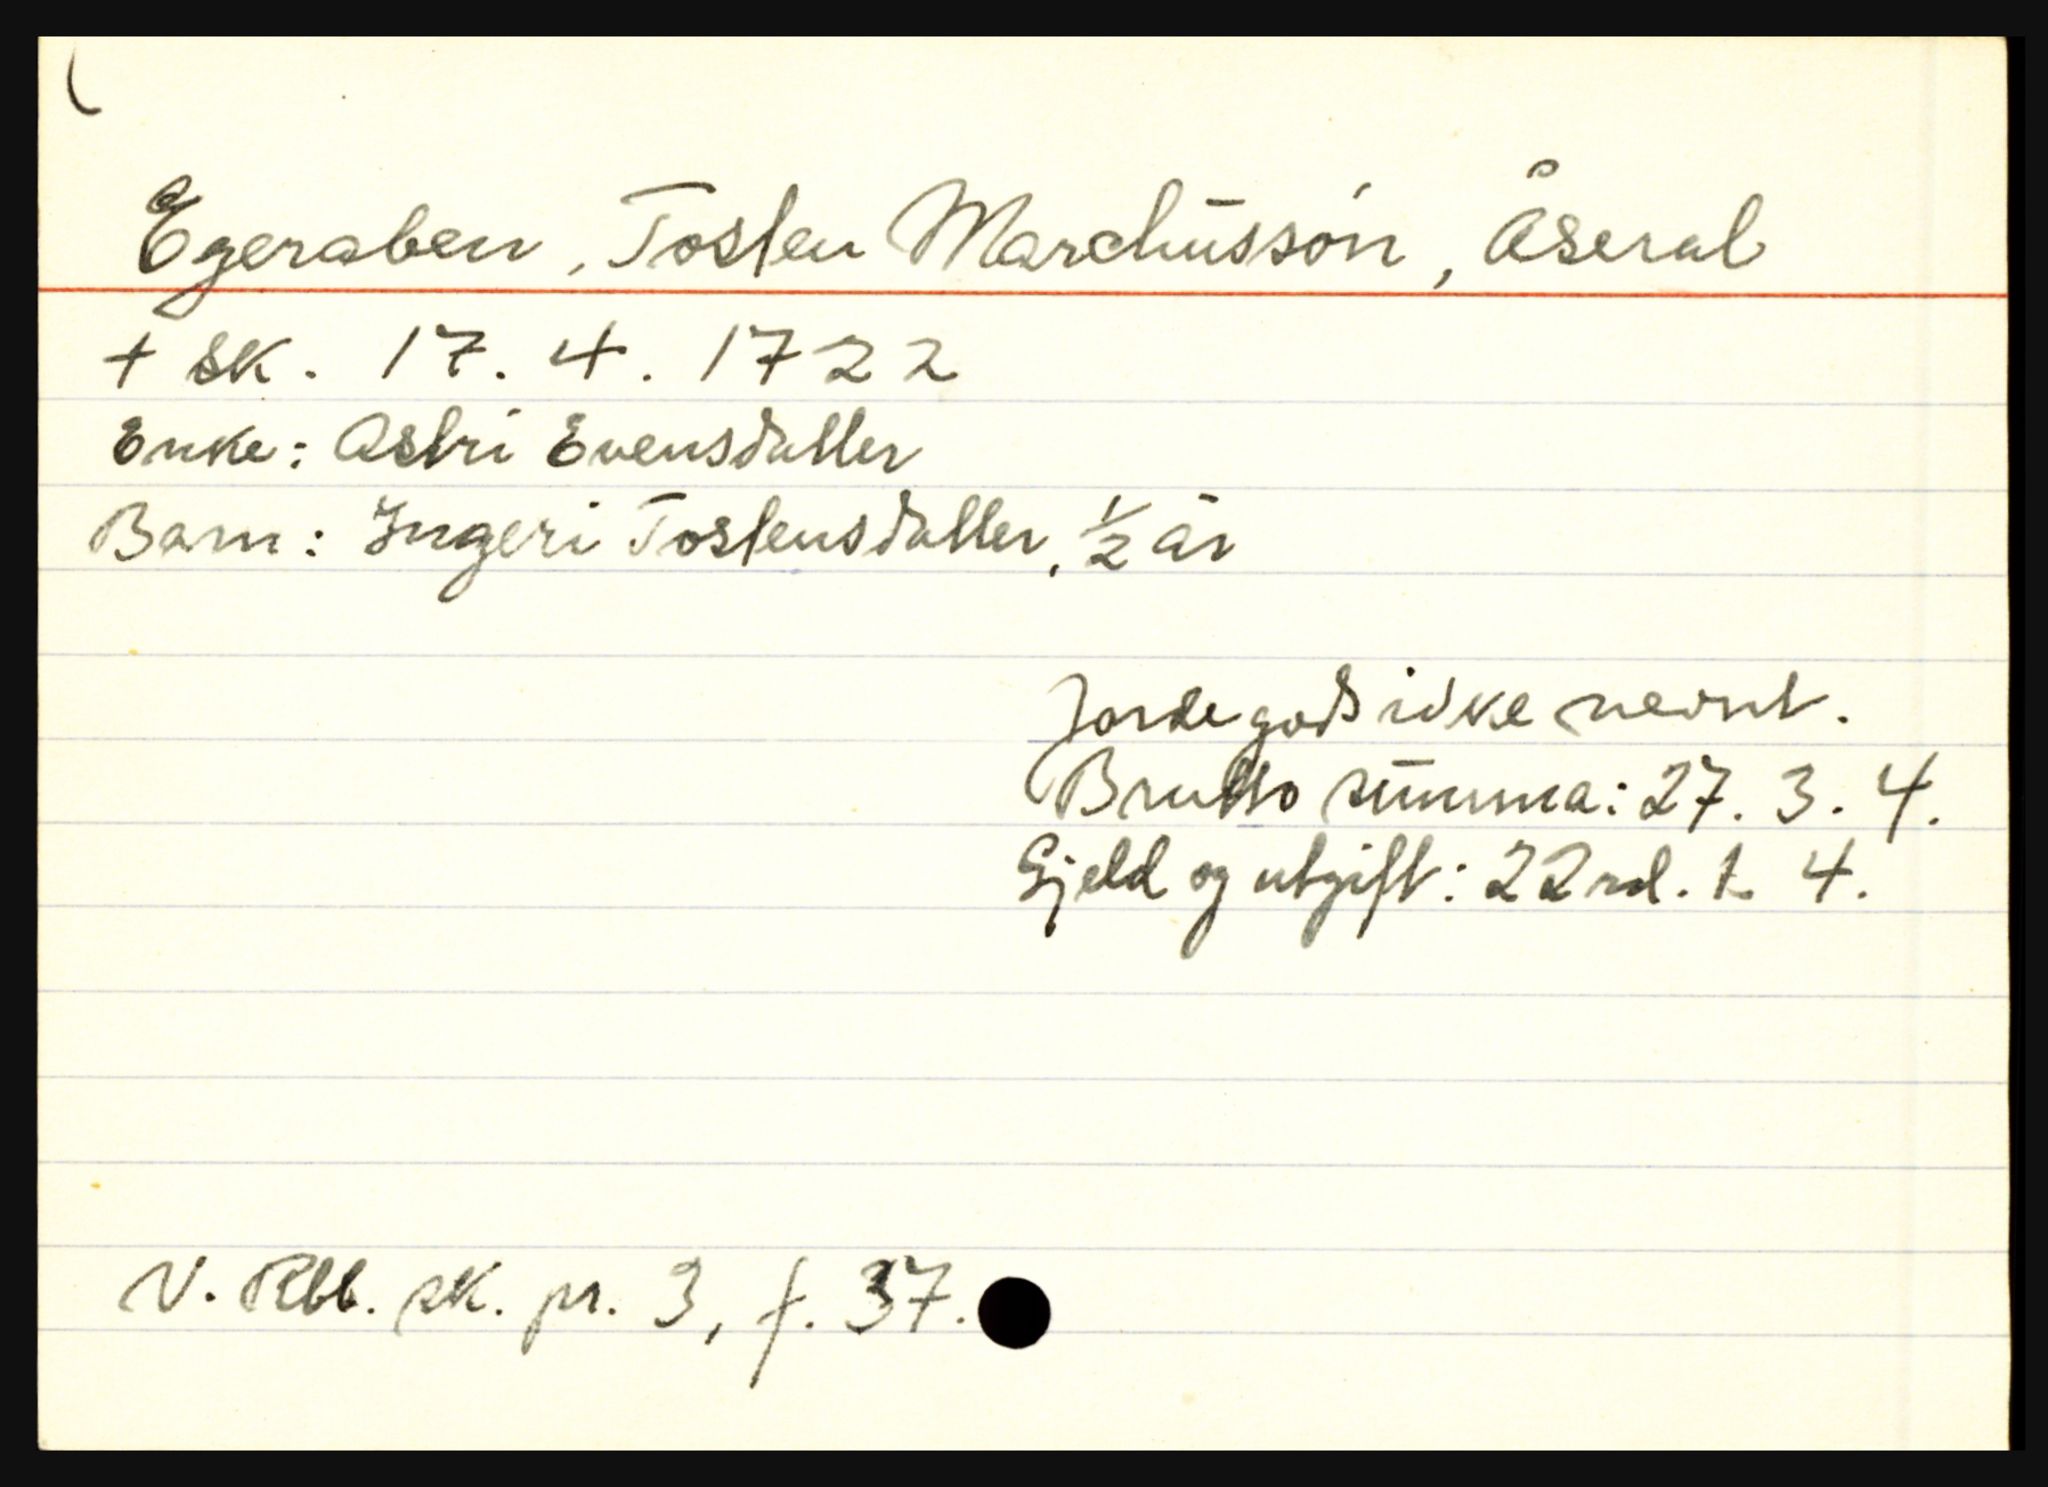 Egeraben, Tosten Marchüssón, Åseral
+ sk. 17. 4. 1722
Enke: Astri Evensdatter
Barn: Ingeri Tostensdatter, 1/2 år
Jordegods ikke nevnt.
Brutto summa: 27. 3. 4.
Gjeld og utgift: 22 rd. 1. 4.
V. Rbb. sk. pr. 3, f. 37.